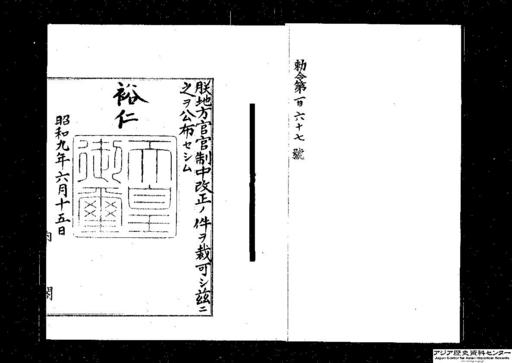 勅令第百六十七號
朕地方官官制中改正ノ件ヲ裁可シ茲ニ
之ヲ公布セシム
裕仁
天皇
御璽
昭和九年六月十五日
内閣
アジア歴史資料センター
Japan Center for Asian Historical Records